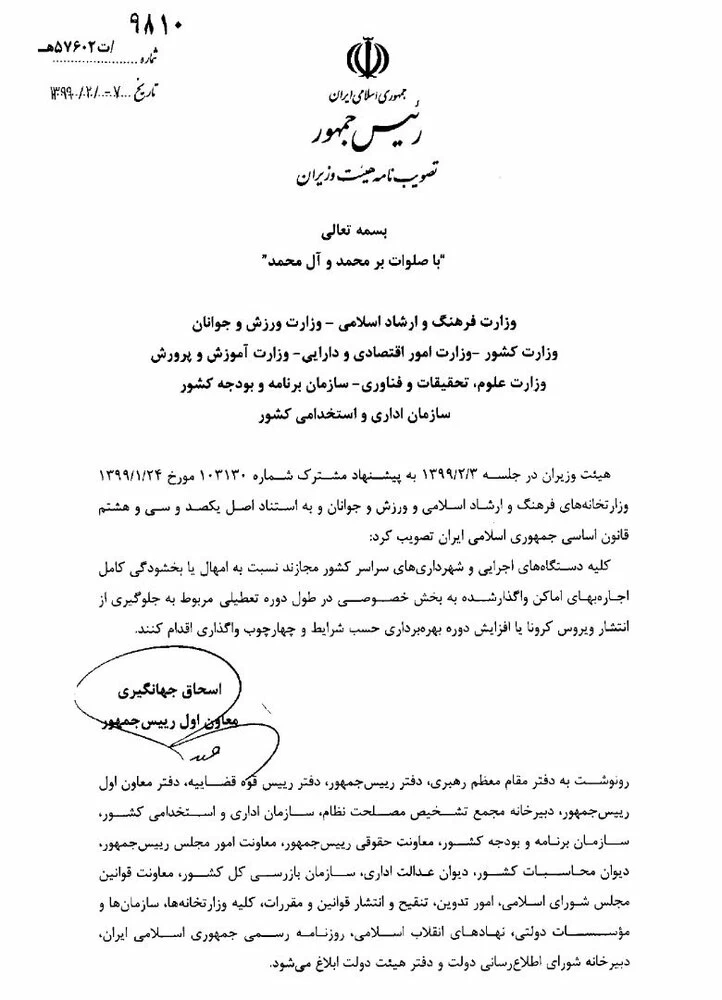 ۹۸۱۰
شماره ........../ت۵۷۶۰۲هـ
تاریخ ۱۳۹۹/۰۲/۰۷
جمهوری اسلامی ایران
رئیس جمهور
تصویب نامه هیئت وزیران
بسمه تعالی
"با صلوات بر محمد و آل محمد"
وزارت فرهنگ و ارشاد اسلامی – وزارت ورزش و جوانان
وزارت کشور –وزارت امور اقتصادی و دارایی– وزارت آموزش و پرورش
وزارت علوم، تحقیقات و فناوری– سازمان برنامه و بودجه کشور
سازمان اداری و استخدامی کشور
هیئت وزیران در جلسه ۱۳۹۹/۲/۳ به پیشنهاد مشترک شماره ۱۰۳۱۳۰ مورخ ۱۳۹۹/۱/۲۴
وزارتخانه‌های فرهنگ و ارشاد اسلامی و ورزش و جوانان و به استناد اصل یکصد و سی و هشتم
قانون اساسی جمهوری اسلامی ایران تصویب کرد:
کلیه دستگاه‌های اجرایی و شهرداری‌های سراسر کشور مجازند نسبت به امهال یا بخشودگی کامل
اجاره‌بهای اماکن واگذارشده به بخش خصوصی در طول دوره تعطیلی مربوط به جلوگیری از
انتشار ویروس کرونا یا افزایش دوره بهره‌برداری حسب شرایط و چهارچوب واگذاری اقدام کنند.
اسحاق جهانگیری
معاون اول رییس‌جمهور
رونوشت به دفتر مقام معظم رهبری، دفتر رییس‌جمهور، دفتر رییس قوه قضاییه، دفتر معاون اول
رییس‌جمهور، دبیرخانه مجمع تشخیص مصلحت نظام، سازمان اداری و استخدامی کشور،
سازمان برنامه و بودجه کشور، معاونت حقوقی رییس‌جمهور، معاونت امور مجلس رییس‌جمهور،
دیوان محاسبات کشور، دیوان عدالت اداری، سازمان بازرسی کل کشور، معاونت قوانین
مجلس شورای اسلامی، امور تدوین، تنقیح و انتشار قوانین و مقررات، کلیه وزارتخانه‌ها، سازمان‌ها و
مؤسسات دولتی، نهادهای انقلاب اسلامی، روزنامه رسمی جمهوری اسلامی ایران،
دبیرخانه شورای اطلاع‌رسانی دولت و دفتر هیئت دولت ابلاغ می‌شود.